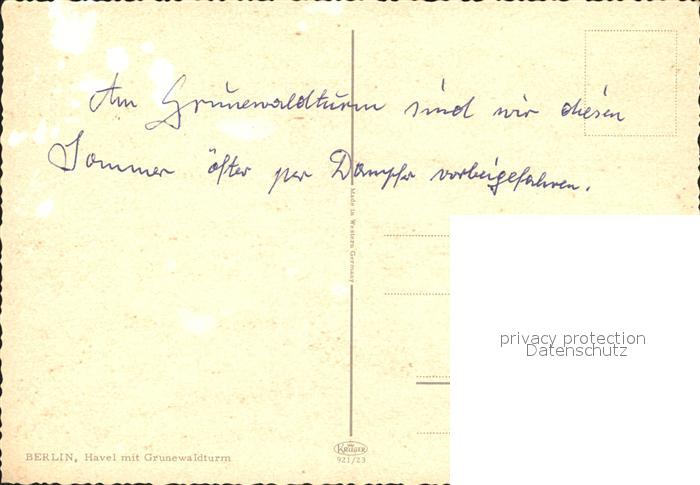 Am Grunewaldturm sind wir diesen
Sommer öfter per Dampfer vorbeigefahren.
Made in Western Germany
privacy protection
Datenschutz
KRÜGER
921/23
BERLIN, Havel mit Grunewaldturm